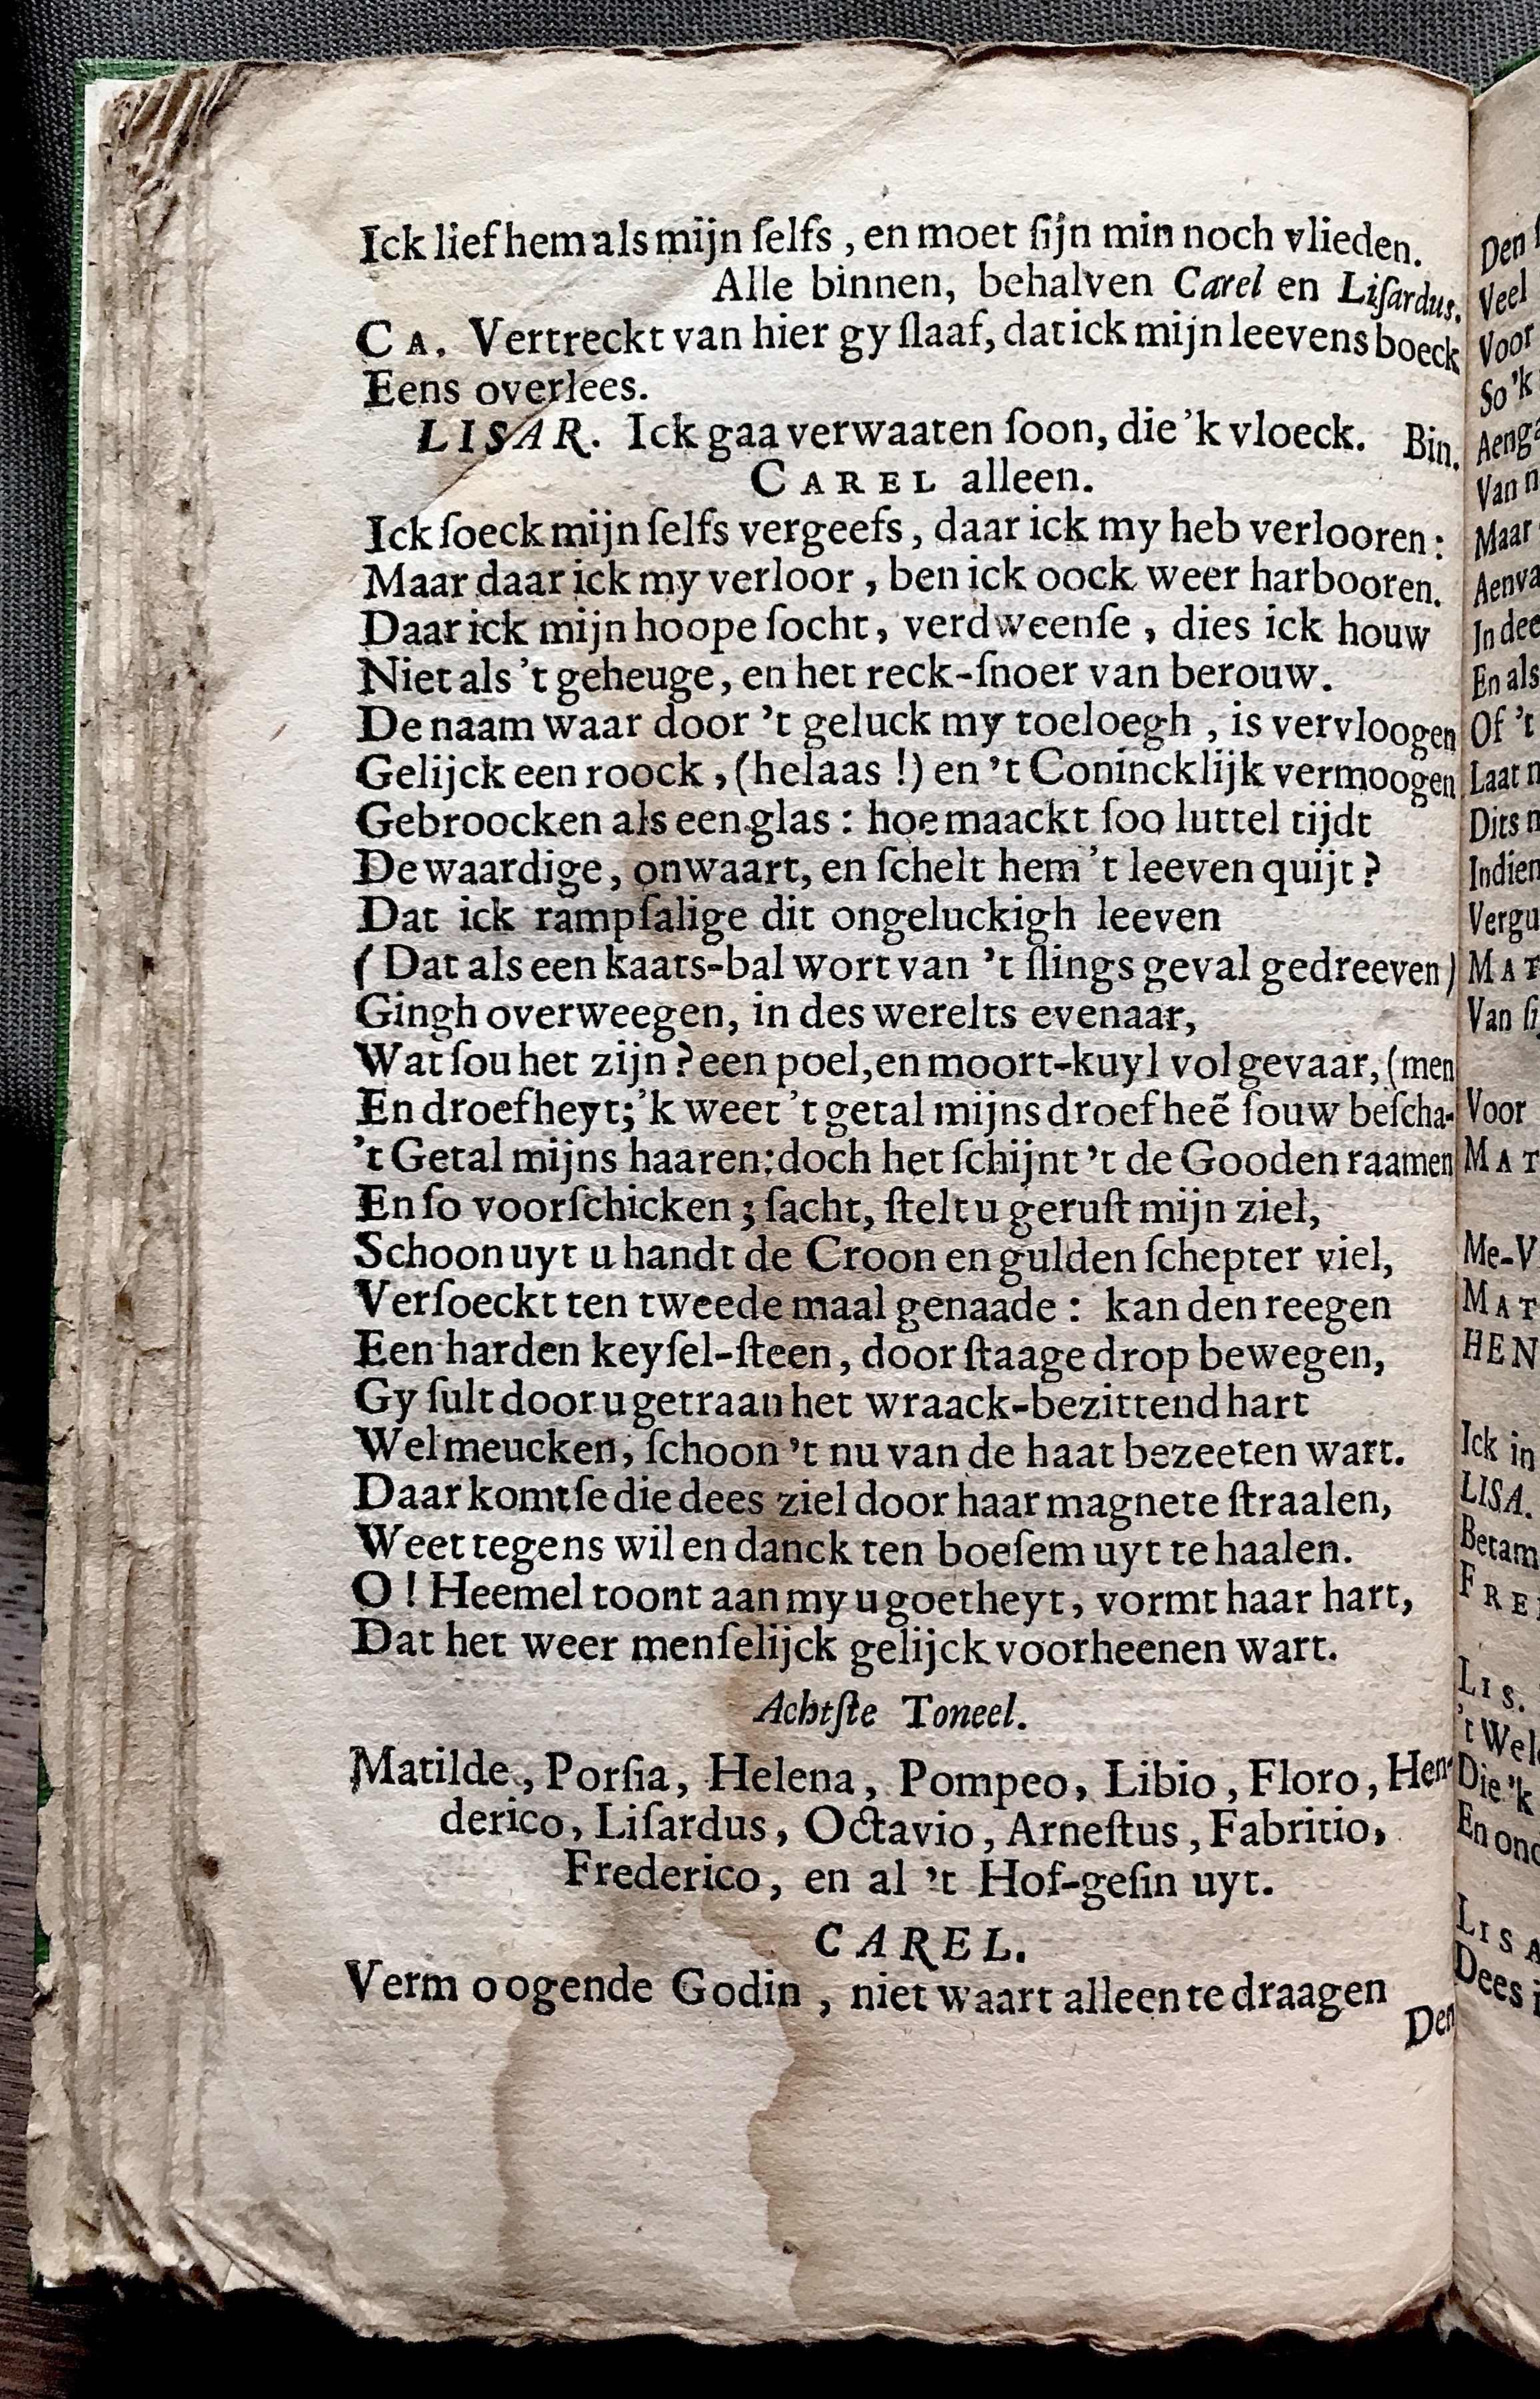 Ick lief hem als mijn ſelfs, en moet ſijn min noch vlieden.
Alle binnen, behalven Carel en Liſardus.
CA. Vertreckt van hier gy ſlaaf, dat ick mijn leevens boeck
Eens overlees.
LISAR. Ick gaa verwaaten ſoon, die 'k vloeck. Bin.
CAREL alleen.
Ick ſoeck mijn ſelfs vergeefs, daar ick my heb verlooren:
Maar daar ick my verloor, ben ick oock weer harbooren.
Daar ick mijn hoope ſocht, verdweenſe, dies ick houw
Niet als 't geheuge, en het reck-ſnoer van berouw.
De naam waar door 't geluck my toeloegh, is vervloogen
Gelijck een roock, (helaas!) en 't Conincklijk vermoogen
Gebroocken als een glas: hoe maackt ſoo luttel tijdt
De waardige, onwaart, en ſchelt hem 't leeven quijt?
Dat ick rampſalige dit ongeluckigh leeven
(Dat als een kaats-bal wort van 't ſlings geval gedreeven)
Gingh overweegen, in des werelts evenaar,
Wat ſou het zijn? een poel, en moort-kuyl vol gevaar, (men
En droefheyt; 'k weet 't getal mijns droefheẽ ſouw beſcha-
't Getal mijns haaren: doch het ſchijnt 't de Gooden raamen
En ſo voorſchicken; ſacht, ſtelt u geruſt mijn ziel,
Schoon uyt u handt de Croon en gulden ſchepter viel,
Verſoeckt ten tweede maal genaade: kan den reegen
Een harden keyſel-ſteen, door ſtaage drop bewegen,
Gy ſult door u getraan het wraack-bezittend hart
Wel meucken, ſchoon 't nu van de haat bezeeten wart.
Daar komtſe die dees ziel door haar magnete ſtraalen,
Weet tegens wil en danck ten boeſem uyt te haalen.
O! Heemel toont aan my u goetheyt, vormt haar hart,
Dat het weer menſelijck gelijck voorheenen wart.
Achtſte Toneel.
Matilde, Porſia, Helena, Pompeo, Libio, Floro, Hen-
derico, Liſardus, Octavio, Arneſtus, Fabritio,
Frederico, en al 't Hof-geſin uyt.
CAREL.
Vermoogende Godin, niet waart alleen te draagen
Den
Den
Veel
Voor
So 'k
Van
Maar
In dee
En als
Of 't
Laat
Dits
Indien
MAT
Van
Voor
MAT
Me-V
MAT
HEN
Ick in
LISA.
FRE
LIS.
Die 'k
LISA
Dees